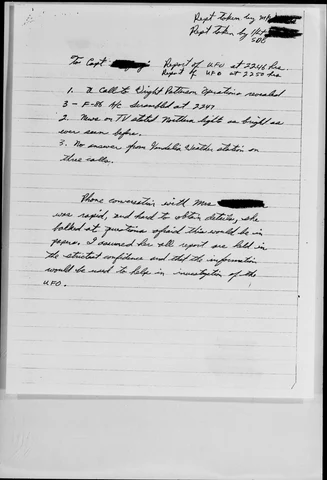 Rept taken by
Rept taken by
SDO
To Capt Report of UFO at 2246 hrs
Report of UFO at 2250 hrs
1. A Call to Wright Patterson Operations revealed
3 - F-86 A/C Scrambled at 2247
2. News on TV stated Northern light as bright as
ever seen before.
3. No answer from Vandalia Weather station on
three calls.
Phone conversation with Mrs
was rapid, and hard to obtain details, she
balked at questions afraid this would be in
papers. I assured her all report are held in
the strictest confidence and that the information
would be used to help in investigation of the
UFO.